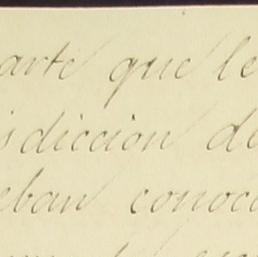 arte que le
isdiccion de
eban conoci